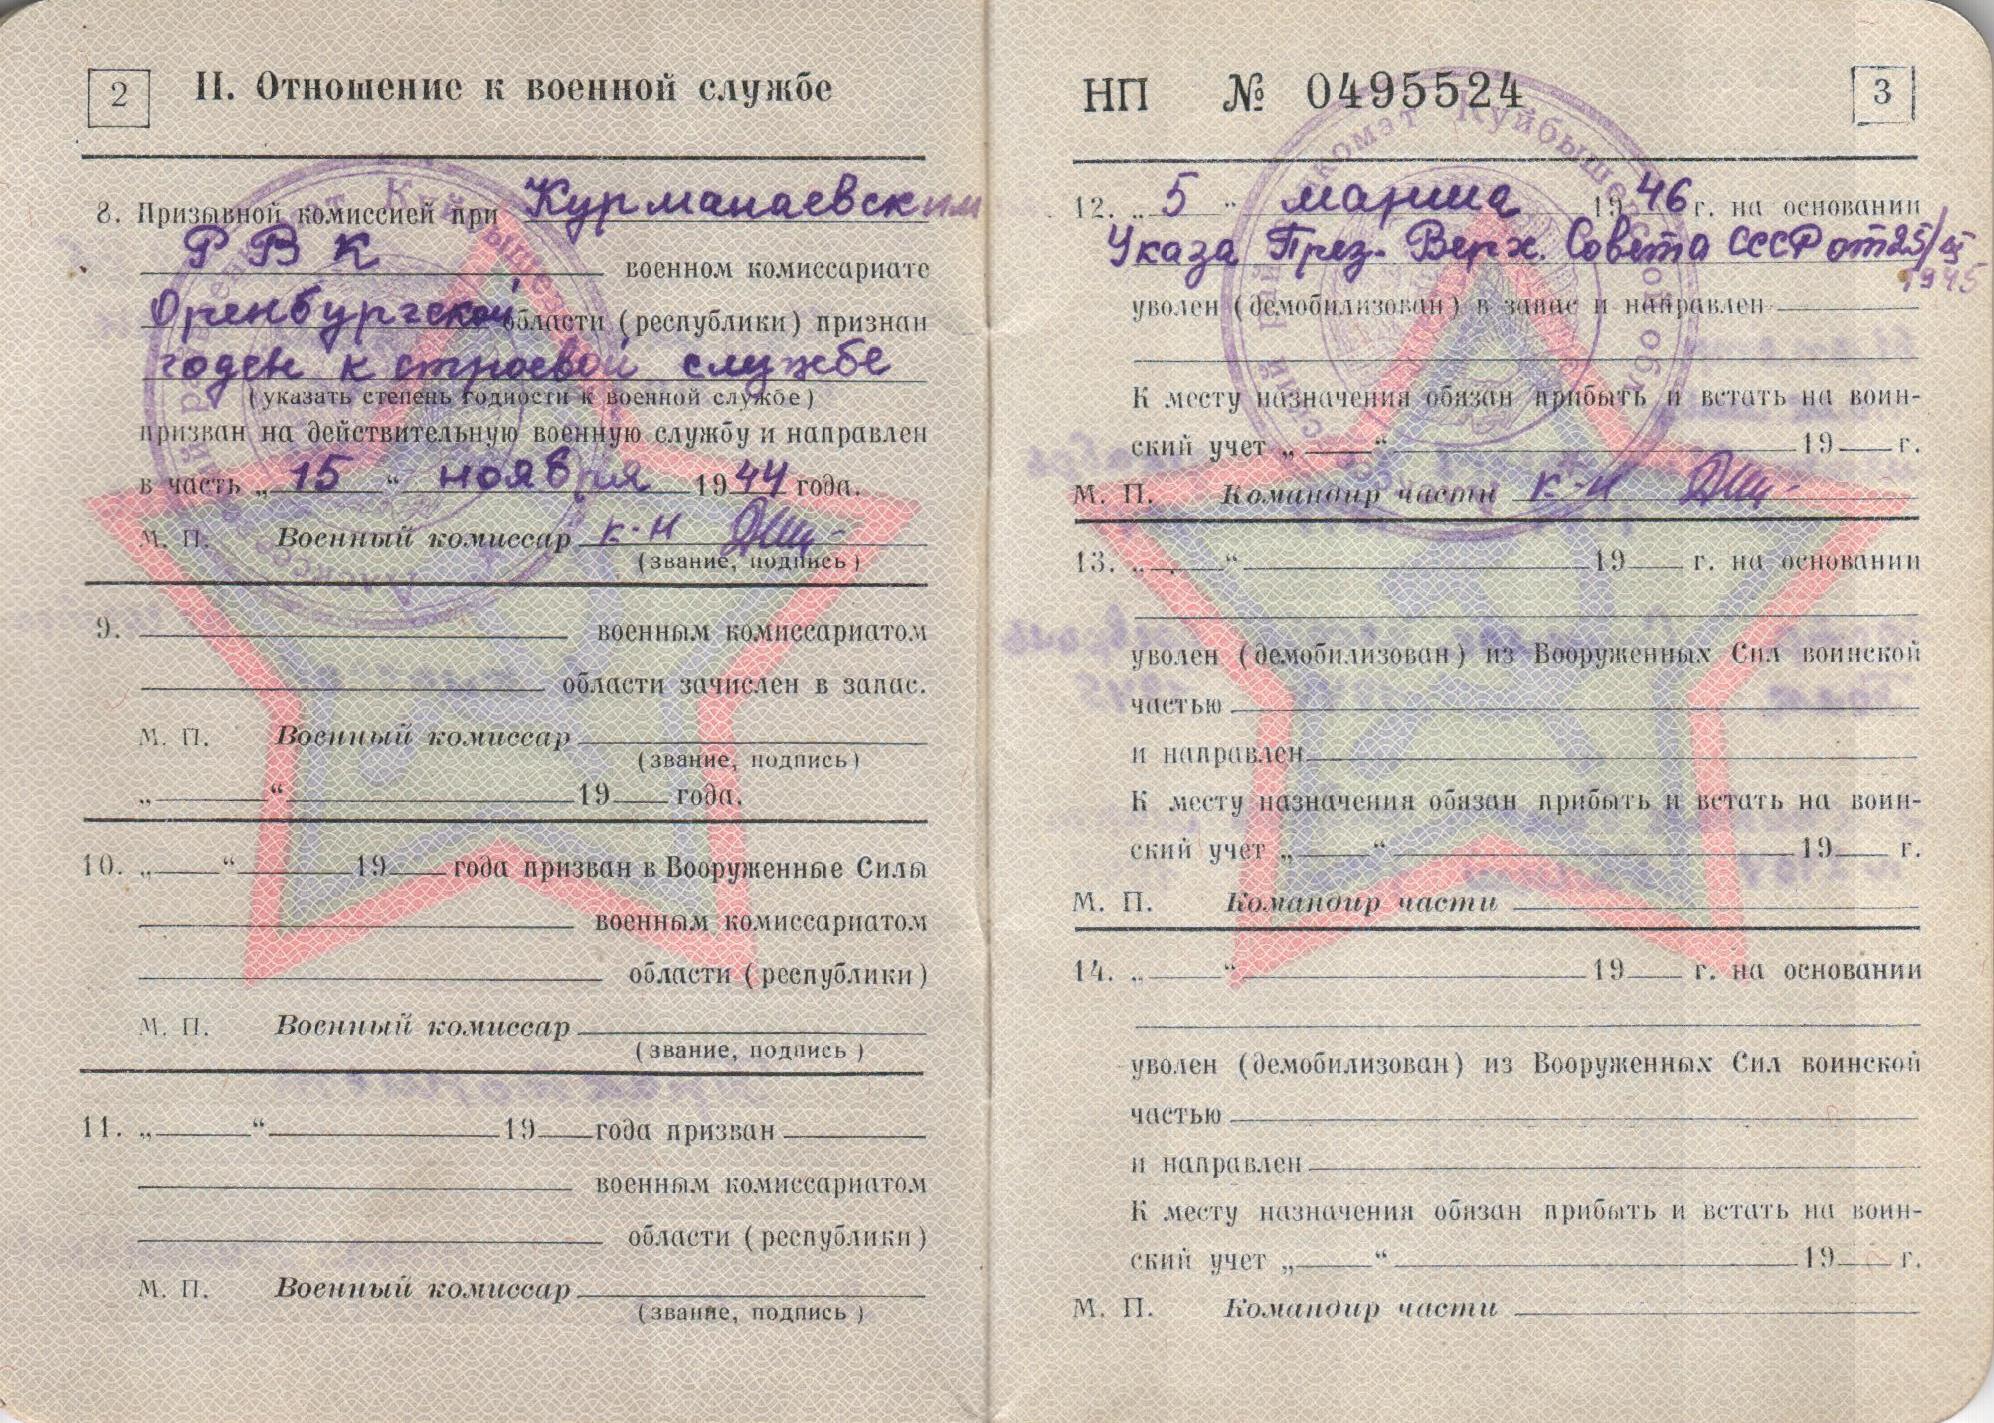 2 II. Отношение к военной службе
8. Призывной комиссией при Курманаевским
Р В К военном комиссариате
Оренбургской области (республики) признан
годен к строевой службе
(указать степень годности к военной службе)
призван на действительную военную службу и направлен
в часть „ 15 “ ноября 1944 года.
М. П. Военный комиссар к-н
(звание, подпись)
9. военным комиссариатом
области зачислен в запас.
М. П. Военный комиссар
(звание, подпись)
„ “ 19 года.
10. „ “ 19 года призван в Вооруженные Силы
военным комиссариатом
области (республики)
М. П. Военный комиссар
(звание, подпись)
11. „ “ 19 года призван
военным комиссариатом
области (республики)
М. П. Военный комиссар
(звание, подпись)
НП № 0495524 3
12. „ 5 “ марта 1946 г. на основании
Указа През. Верх. Совета СССР от 25/IX
1945
уволен (демобилизован) в запас и направлен
К месту назначения обязан прибыть и встать на воин-
ский учет „ “ 19 г.
М. П. Командир части к-н
13. „ “ 19 г. на основании
уволен (демобилизован) из Вооруженных Сил воинской
частью
и направлен
К месту назначения обязан прибыть и встать на воин-
ский учет „ “ 19 г.
М. П. Командир части
14. „ “ 19 г. на основании
уволен (демобилизован) из Вооруженных Сил воинской
частью
и направлен
К месту назначения обязан прибыть и встать на воин-
ский учет „ “ 19 г.
М. П. Командир части